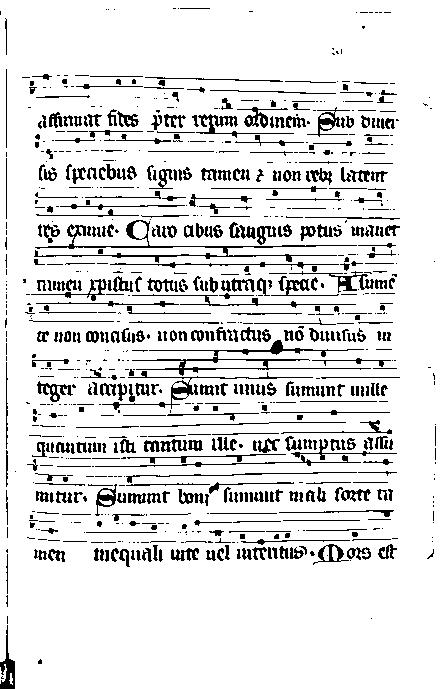 affirmat fides p̄ter rerum ordinem. Sub diuer
sis speciebus signis tamen ⁊ non rebꝫ latent
res eximie. Caro cibus sanguis potus manet
tamen xpistus totus sub utraqꝫ specie. A sumē
te non concisus. non confractus nō diuisus in
teger accipitur. Sumit unus sumunt mille
quantum isti tantum ille. nec sumptus assu
mitur. Sumunt boni sumunt mali sorte ta
men inequali uite uel interitus. Mors est